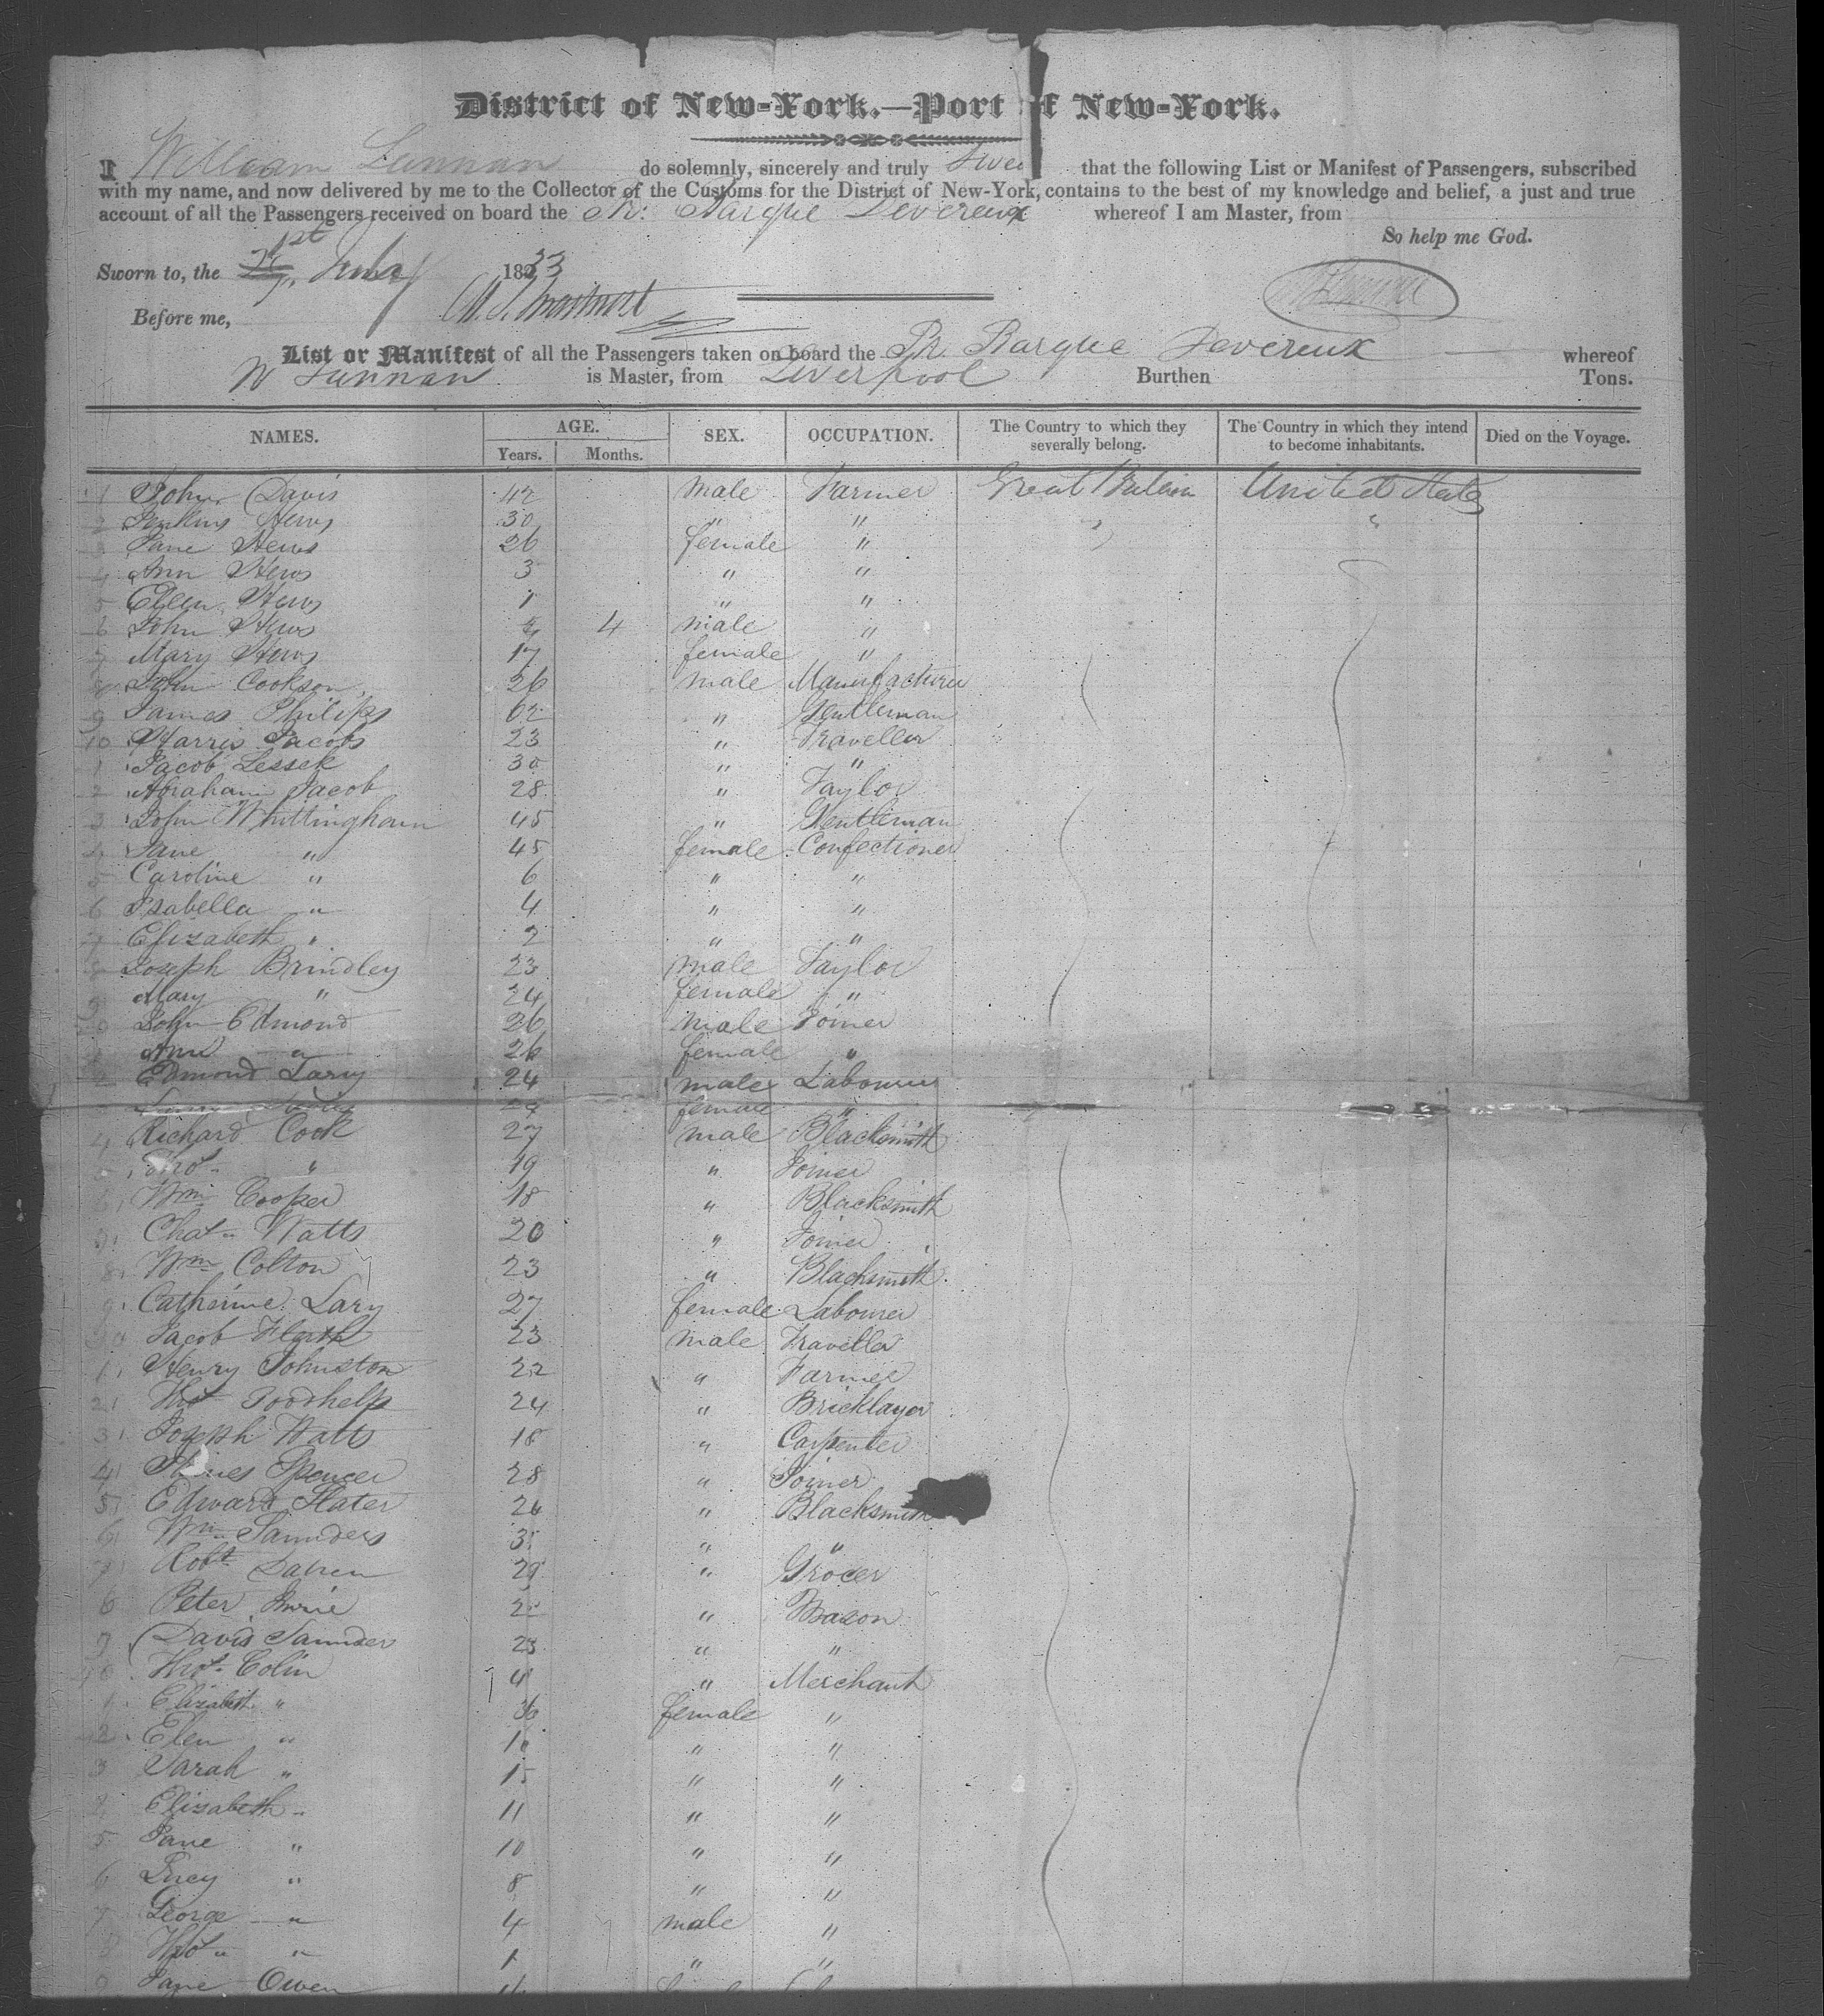 District of New-York.—Port of New-York.
I William Lunnan do solemnly, sincerely and truly swear that the following List or Manifest of Passengers, subscribed
with my name, and now delivered by me to the Collector of the Customs for the District of New-York, contains to the best of my knowledge and belief, a just and true
account of all the Passengers received on board the Br. Barque Devereux whereof I am Master, from
So help me God.
Sworn to, the 1st July 1833
Before me,
List or Manifest of all the Passengers taken on board the Br. Barque Devereux whereof
W Lunnan is Master, from Liverpool Burthen Tons.
NAMES. AGE. Years. Months. SEX. OCCUPATION. The Country to which they severally belong. The Country in which they intend to become inhabitants. Died on the Voyage.
1 John Davis 42 male Farmer Great Britain United States
2 Jenkins Hews 30 " " " "
3 Jane Hews 26 female "
4 Ann Hews 3 " "
5 Ellen Hews 1 " "
6 John Hews 4 male "
7 Mary Hews 17 female "
8 John Cookson 26 male Manufacturer
9 James Philips 62 " Gentleman
10 Harris Jacobs 23 " Traveller
1 Jacob Lessek 30 " "
2 Abraham Jacob 28 " Taylor
3 John Whittingham 45 " Gentleman
4 Jane " 45 female Confectioner
5 Caroline " 6 " "
6 Isabella " 4 " "
7 Elizabeth " 2 " "
8 Joseph Brindley 23 male Taylor
9 Mary " 24 female "
20 John Edmond 26 male Joiner
1 Ann " 26 female "
2 Edmond Lary 24 male Labourer
female "
4 Richard Cook 27 male Blacksmith
5 Thos " 19 " Joiner
6 Wm Cooper 18 " Blacksmith
7 Chas Watts 20 " Joiner
8 Wm Colton 23 " Blacksmith
9 Catherine Lary 27 female Labourer
30 Jacob 23 male Traveller
1 Henry Johnston 22 " Farmer
2 Thos Goodhelp 24 " Bricklayer
3 Joseph Watts 18 " Carpenter
4 James Spencer 28 " Joiner
5 Edward Slater 26 " Blacksmith
6 Wm Saunders " "
7 Robt 29 " Grocer
6 Peter " Mason
7 David Saunder 23 " "
40 Thos Colin 41 " Merchant
1 Elizabeth " 36 female "
2 Elen " " "
3 Sarah " 15 " "
4 Elizabeth " 11 " "
5 Jane " 10 " "
6 Lucy " 8 " "
7 George " 4 male "
8 Thos " 1 " "
9 Jane Owen